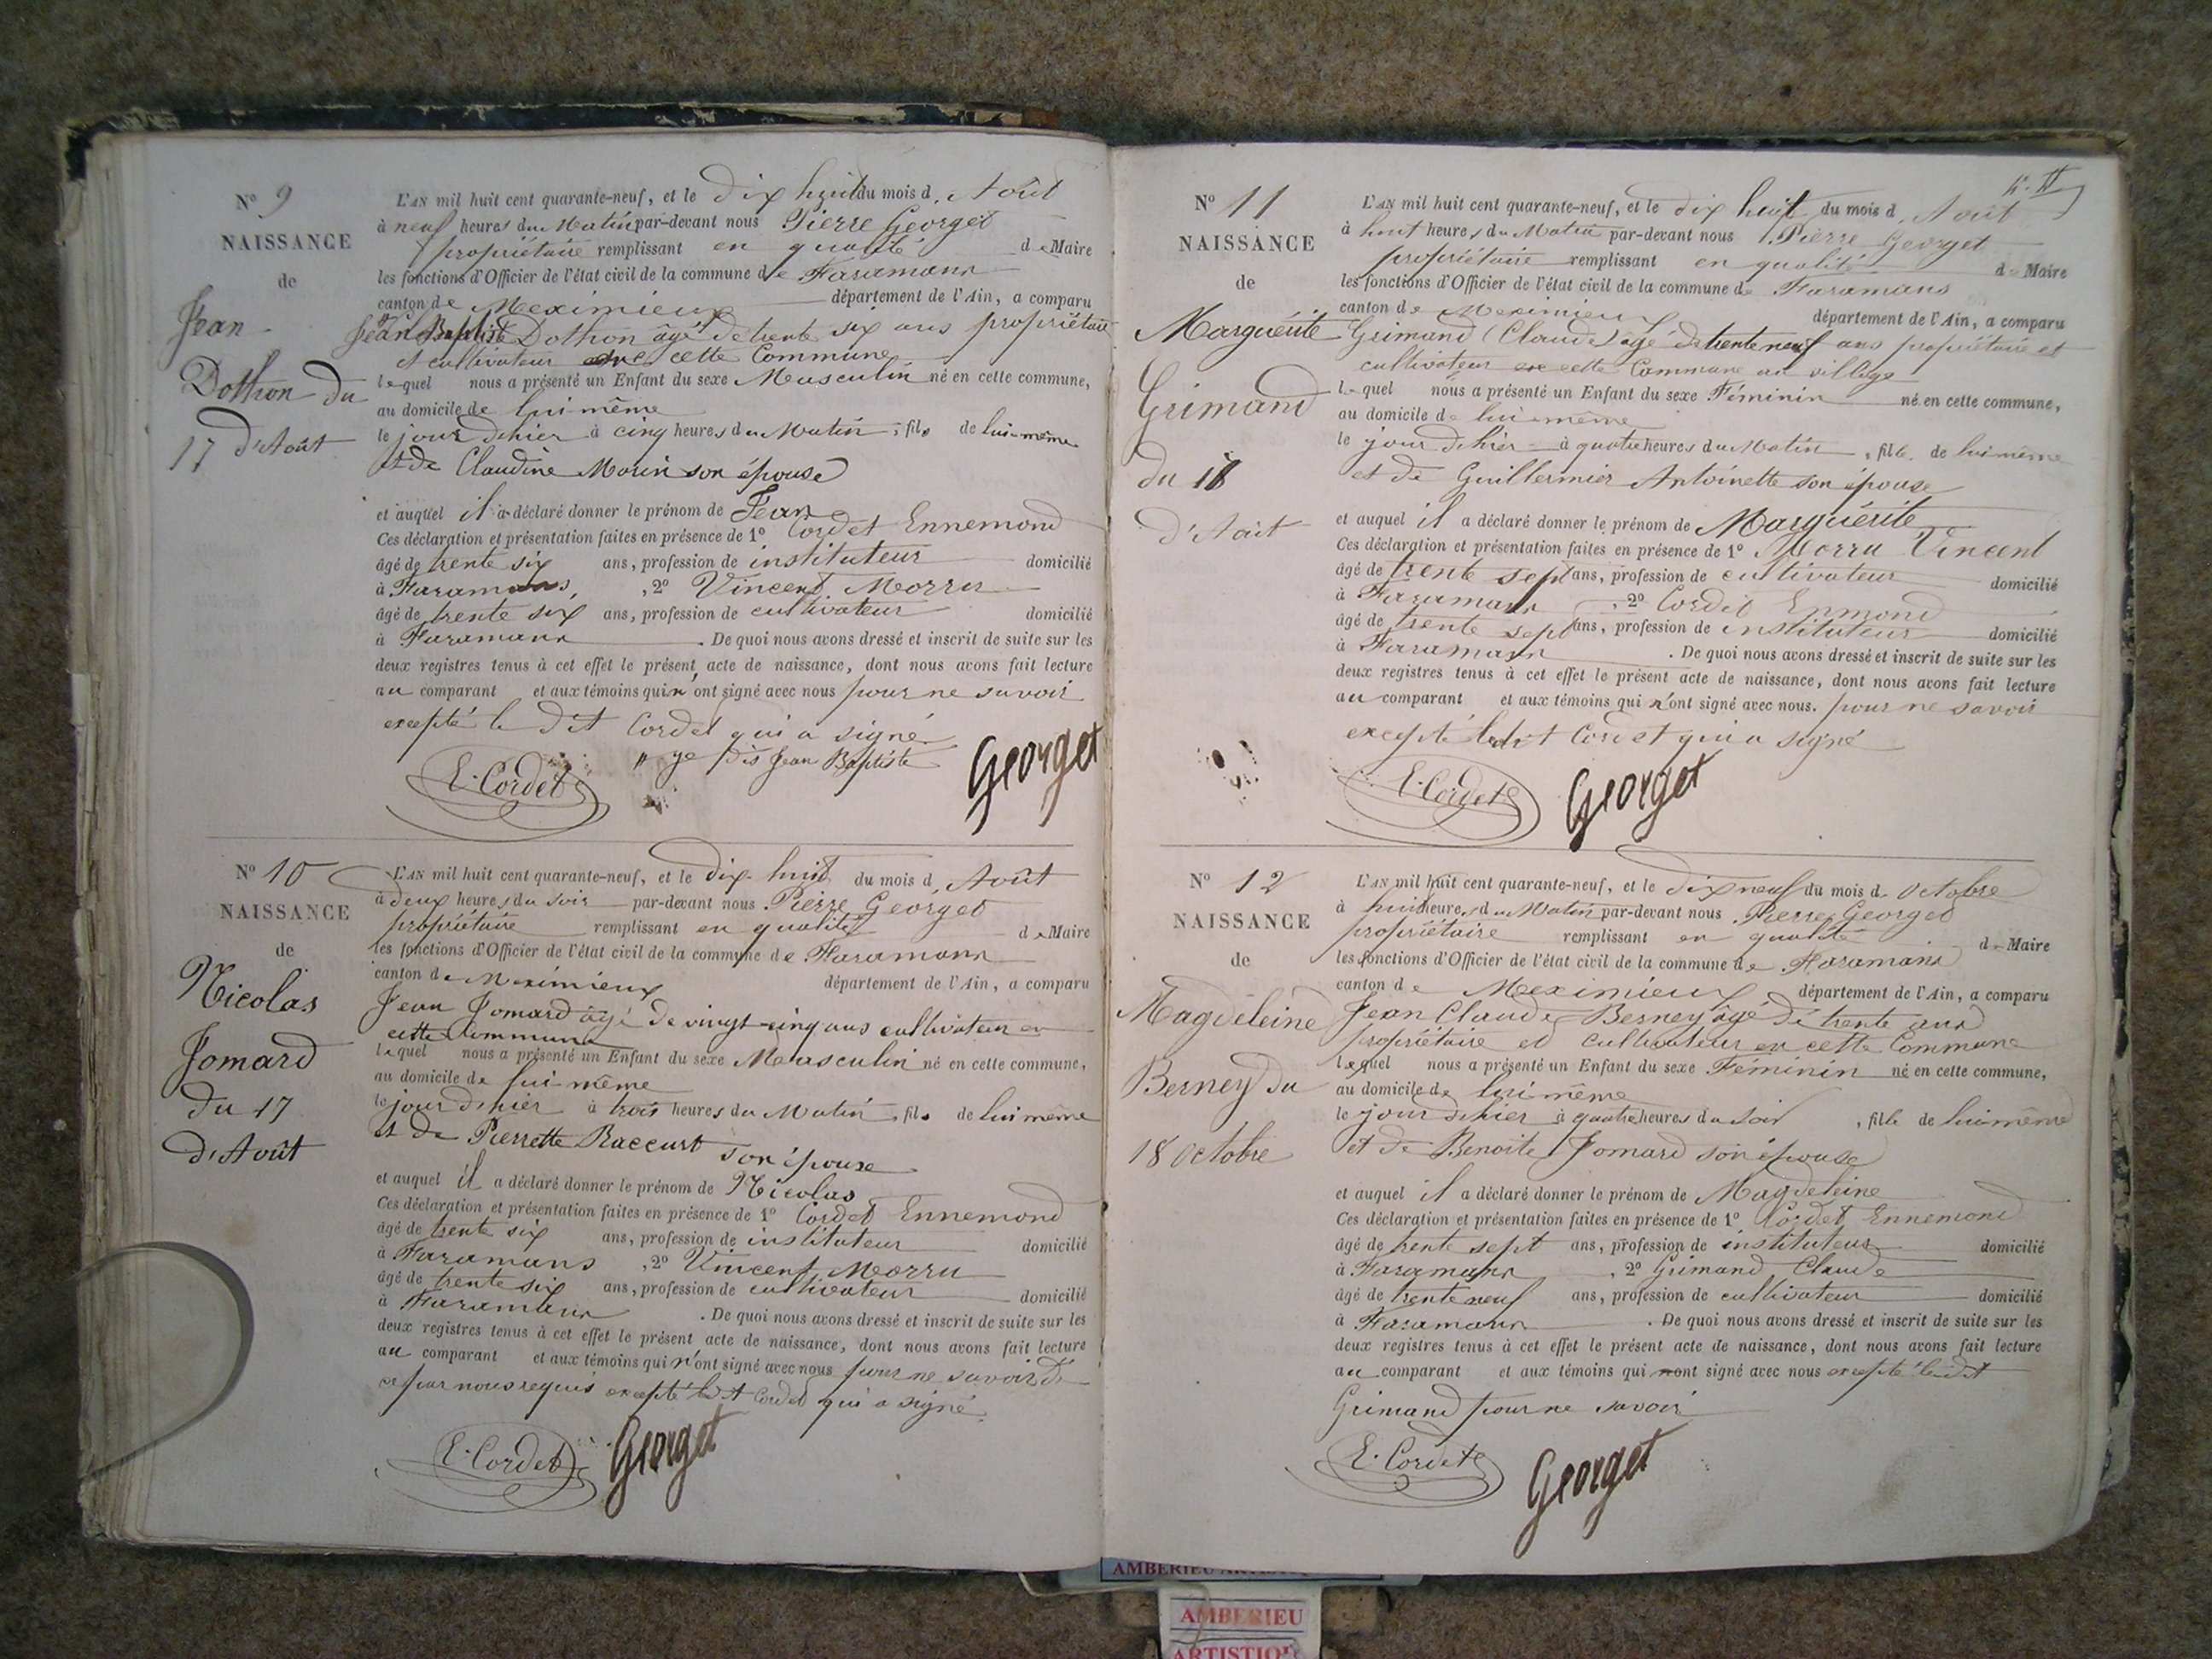 N° 9
NAISSANCE
de
Jean
Dothon du
17 d'Août
L'AN mil huit cent quarante-neuf, et le dix huit du mois d'Août
à neuf heures du Matin par-devant nous Pierre Georget
propriétaire remplissant en qualité de Maire
les fonctions d'Officier de l'état civil de la commune de Faramans
canton de Meximieux département de l'Ain, a comparu
Jean Baptiste Dothon âgé de trente six ans propriétaire
et cultivateur cette Commune
lequel nous a présenté un Enfant du sexe Masculin né en cette commune,
au domicile de lui-même
le jour d'hier à cinq heures du Matin, fils de lui-même
et de Claudine Morin son épouse
et auquel il a déclaré donner le prénom de Jean
Ces déclaration et présentation faites en présence de 1° Cordet Ennemond
âgé de trente six ans, profession de instituteur domicilié
à Faramans, 2° Vincent Morru
âgé de trente six ans, profession de cultivateur domicilié
à Faramans. De quoi nous avons dressé et inscrit de suite sur les
deux registres tenus à cet effet le présent acte de naissance, dont nous avons fait lecture
au comparant et aux témoins qui n'ont signé avec nous pour ne savoir
excepté le dit Cordet qui a signé
" je dis Jean Baptiste
E. Cordet Georget
N° 10
NAISSANCE
de
Nicolas
Jomard
du 17
d'Août
L'AN mil huit cent quarante-neuf, et le dix-huit du mois d'Août
à deux heures du soir par-devant nous Pierre Georget
propriétaire remplissant en qualité de Maire
les fonctions d'Officier de l'état civil de la commune de Faramans
canton de Meximieux département de l'Ain, a comparu
Jean Jomard âgé de vingt-cinq ans cultivateur en
cette commune
lequel nous a présenté un Enfant du sexe Masculin né en cette commune,
au domicile de lui-même
le jour d'hier à trois heures du Matin, fils de lui même
et de Pierrette Raccurt son épouse
et auquel il a déclaré donner le prénom de Nicolas
Ces déclaration et présentation faites en présence de 1° Cordet Ennemond
âgé de trente six ans, profession de instituteur domicilié
à Faramans, 2° Vincent Morru
âgé de trente six ans, profession de cultivateur domicilié
à Faramans. De quoi nous avons dressé et inscrit de suite sur les
deux registres tenus à cet effet le présent acte de naissance, dont nous avons fait lecture
au comparant et aux témoins qui n'ont signé avec nous pour ne savoir de
ce par nous requis excepté le dit Cordet qui a signé
E. Cordet Georget
N° 11
NAISSANCE
de
Marguérite
Grimand
du 18
d'Août
L'AN mil huit cent quarante-neuf, et le dix huit du mois d'Août
à huit heures du Matin par-devant nous Pierre Georget
propriétaire remplissant en qualité de Maire
les fonctions d'Officier de l'état civil de la commune de Faramans
canton de Meximieux département de l'Ain, a comparu
Grimand (Claude) âgé de trente neuf ans propriétaire et
cultivateur en cette Commune au village
lequel nous a présenté un Enfant du sexe Féminin né en cette commune,
au domicile de lui-même
le jour d'hier à quatre heures du Matin, fille de lui-même
et de Guillermier Antoinette son épouse
et auquel il a déclaré donner le prénom de Marguérite
Ces déclaration et présentation faites en présence de 1° Morru Vincent
âgé de trente sept ans, profession de cultivateur domicilié
à Faramans, 2° Cordet Enmond
âgé de trente sept ans, profession de instituteur domicilié
à Faramans. De quoi nous avons dressé et inscrit de suite sur les
deux registres tenus à cet effet le présent acte de naissance, dont nous avons fait lecture
au comparant et aux témoins qui n'ont signé avec nous. pour ne savoir
excepté ledit Cordet qui a signé
E. Cordet Georget
N° 12
NAISSANCE
de
Magdeleine
Berney du
18 Octobre
L'AN mil huit cent quarante-neuf, et le dix neuf du mois d Octobre
à huit heures du Matin par-devant nous Pierre Georget
propriétaire remplissant en qualité de Maire
les fonctions d'Officier de l'état civil de la commune de Faramans
canton de Meximieux département de l'Ain, a comparu
Jean Claude Berney âgé de trente ans
propriétaire et cultivateur en cette Commune
lequel nous a présenté un Enfant du sexe Féminin né en cette commune,
au domicile de lui-même
le jour d'hier à quatre heures du soir, fille de lui-même
et de Benoite Jomard son épouse
et auquel il a déclaré donner le prénom de Magdeleine
Ces déclaration et présentation faites en présence de 1° Cordet Ennemond
âgé de trente sept ans, profession de instituteur domicilié
à Faramans, 2° Grimand Claude
âgé de trente neuf ans, profession de cultivateur domicilié
à Faramans. De quoi nous avons dressé et inscrit de suite sur les
deux registres tenus à cet effet le présent acte de naissance, dont nous avons fait lecture
au comparant et aux témoins qui ont signé avec nous excepté ledit
Grimand pour ne savoir
E. Cordet Georget
AMBERIEU
AMBERIEU
ARTISTIQUE